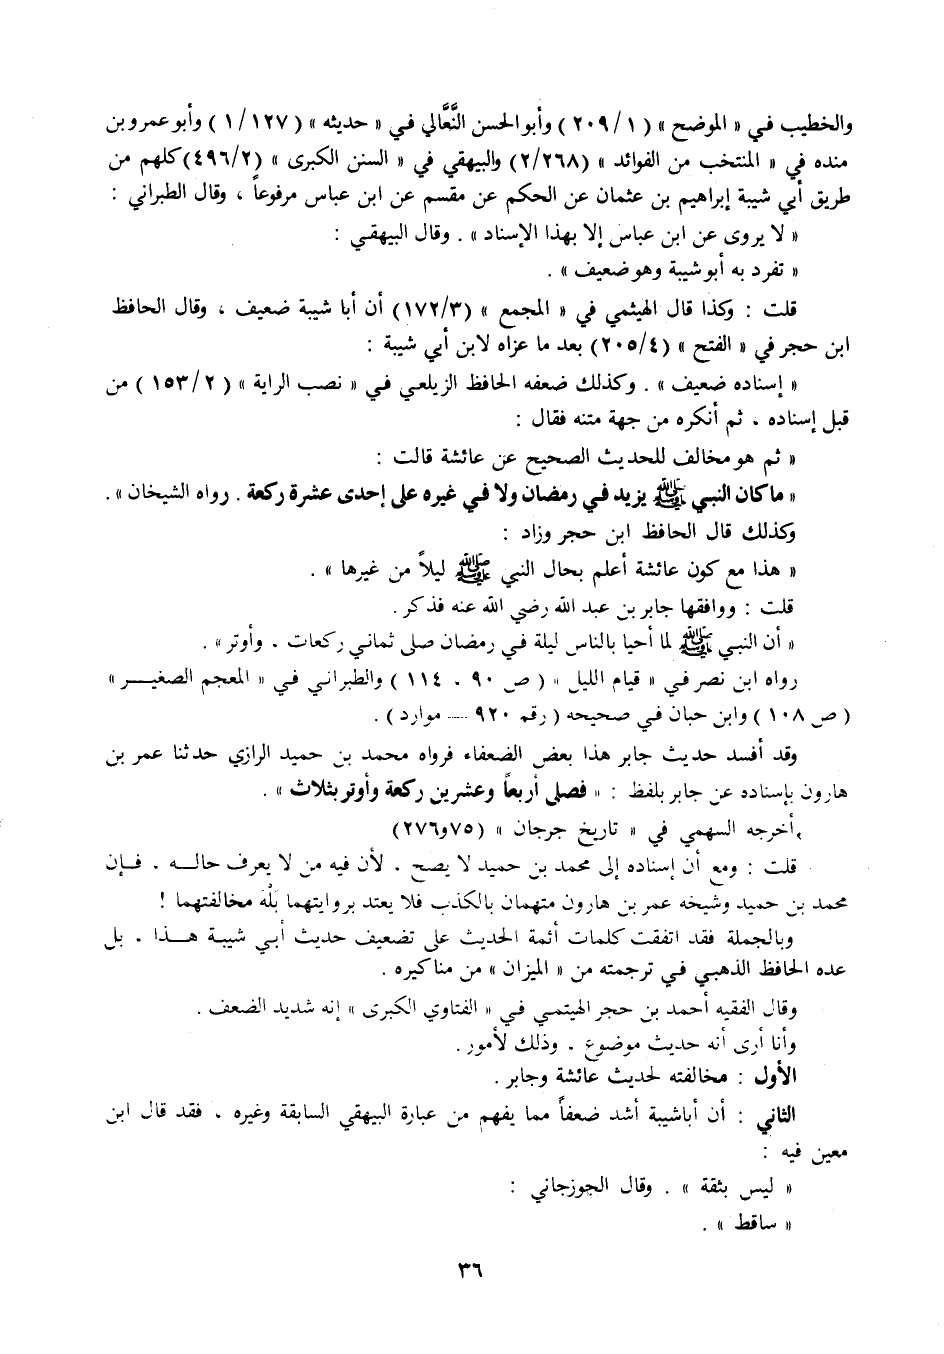 والخطيب في « الموضح » ( ٢٠٩/١ ) وأبو الحسن النَّعَّالي في « حديثه » ( ١/١٢٧ ) وأبو عمرو بن
منده في « المنتخب من الفوائد » (٢/٢٦٨) والبيهقي في « السنن الكبرى » (٤٩٦/٢) كلهم من
طريق أبي شيبة إبراهيم بن عثمان عن الحكم عن مقسم عن ابن عباس مرفوعاً ، وقال الطبراني :
« لا يروى عن ابن عباس إلا بهذا الإسناد » . وقال البيهقي :
« تفرد به أبو شيبة وهو ضعيف » .
قلت : وكذا قال الهيثمي في « المجمع » (١٧٢/٣) أن أبا شيبة ضعيف ، وقال الحافظ
ابن حجر في « الفتح » (٢٠٥/٤) بعد ما عزاه لابن أبي شيبة :
« إسناده ضعيف » . وكذلك ضعفه الحافظ الزيلعي في « نصب الراية » ( ١٥٣/٢ ) من
قبل إسناده ، ثم أنكره من جهة متنه فقال :
« ثم هو مخالف للحديث الصحيح عن عائشة قالت :
« ما كان النبي ﷺ يزيد في رمضان ولا في غيره على إحدى عشرة ركعة . رواه الشيخان » .
وكذلك قال الحافظ ابن حجر وزاد :
« هذا مع كون عائشة أعلم بحال النبي ﷺ ليلاً من غيرها » .
قلت : ووافقها جابر بن عبد الله رضي الله عنه فذكر .
« أن النبي ﷺ لما أحيا بالناس ليلة في رمضان صلى ثماني ركعات . وأوتر » .
رواه ابن نصر في « قيام الليل » ( ص ٩٠ . ١١٤ ) والطبراني في « المعجم الصغيـــر »
( ص ١٠٨ ) وابن حبان في صحيحه ( رقم ٩٢٠ — موارد ) .
وقد أفسد حديث جابر هذا بعض الضعفاء فرواه محمد بن حميد الرازي حدثنا عمر بن
هارون بإسناده عن جابر بلفظ : « فصلى أربعاً وعشرين ركعة وأوتر بثلاث » .
أخرجه السهمي في « تاريخ جرجان » (٧٥و٢٧٦)
قلت : ومع أن إسناده إلى محمد بن حميد لا يصح . لأن فيه من لا يعرف حالــه . فــإن
محمد بن حميد وشيخه عمر بن هارون متهمان بالكذب فلا يعتد بروايتهما بَلْهَ مخالفتهما !
وبالجملة فقد اتفقت كلمات أئمة الحديث على تضعيف حديث أبي شيبة هـــذا . بل
عده الحافظ الذهبي في ترجمته من « الميزان » من مناكيره .
وقال الفقيه أحمد بن حجر الهيتمي في « الفتاوي الكبرى » إنه شديد الضعف .
وأنا أرى أنه حديث موضوع . وذلك لأمور .
الأول : مخالفته لحديث عائشة وجابر .
الثاني : أن أباشيبة أشد ضعفاً مما يفهم من عبارة البيهقي السابقة وغيره . فقد قال ابن
معين فيه :
« ليس بثقة » . وقال الجوزجاني :
« ساقط » .
٣٦